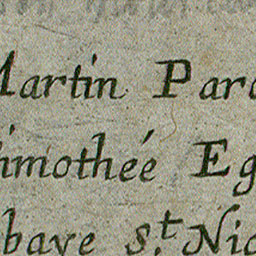 Martin Par
imotheé Eg
baye s.t Nic